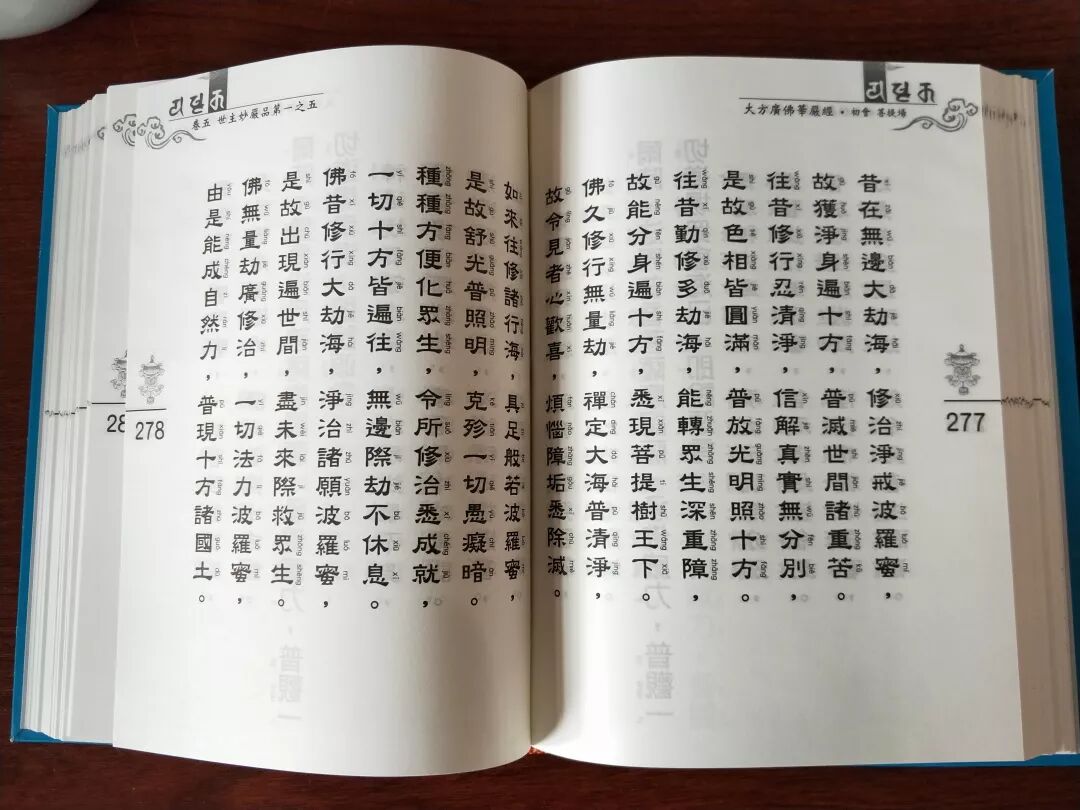 大方廣佛華嚴經·初會 菩提場
昔在無邊大劫海，修治淨戒波羅蜜，
故獲淨身遍十方，普滅世間諸重苦。
往昔修行忍清淨，信解真實無分別，
是故色相皆圓滿，普放光明照十方。
往昔勤修多劫海，能轉眾生深重障，
故能分身遍十方，悉現菩提樹王下。
佛久修行無量劫，禪定大海普清淨，
故令見者心歡喜，煩惱障垢悉除滅。
277
卷五 世主妙嚴品第一之五
如來往修諸行海，具足般若波羅蜜，
是故舒光普照明，克殄一切愚癡暗。
種種方便化眾生，令所修治悉成就，
一切十方皆遍往，無邊際劫不休息。
佛昔修行大劫海，淨治諸願波羅蜜，
是故出現遍世間，盡未來際救眾生。
佛無量劫廣修治，一切法力波羅蜜，
由是能成自然力，普現十方諸國土。
278